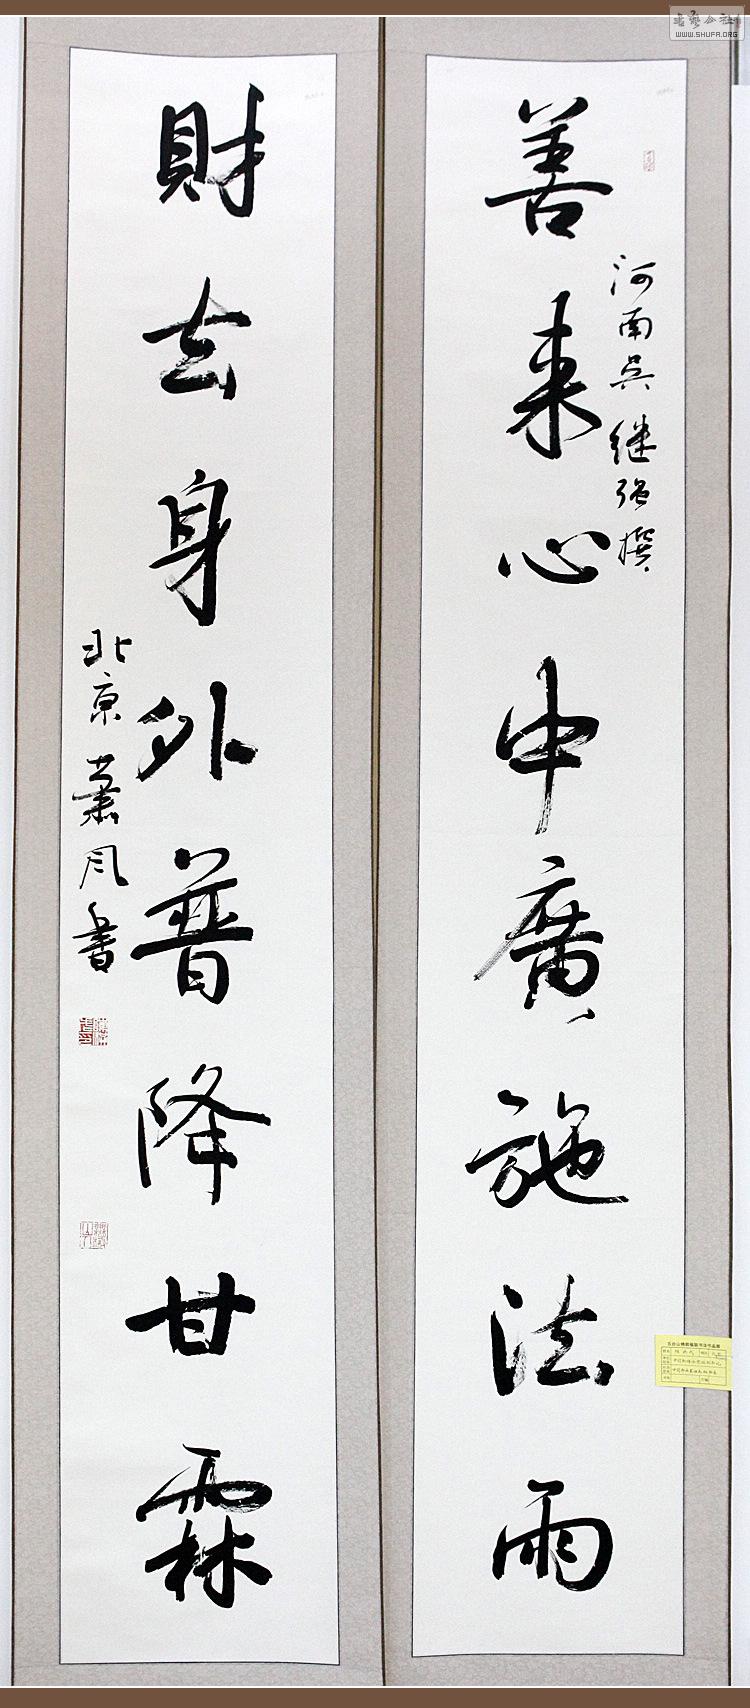 善来心中廣施法雨
河南吳继强撰
財去身外普降甘霖
北京萧风书
书艺公社
WWW.SHUFA.ORG